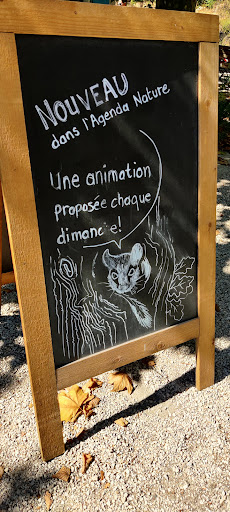 NOUVEAU
dans l'Agenda Nature
Une animation
proposée chaque
dimanche!